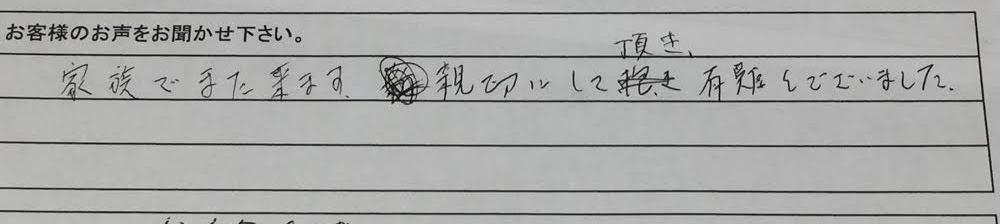 お客様のお声をお聞かせ下さい。
家族でまた来ます。親切にして頂き、有難うございました。